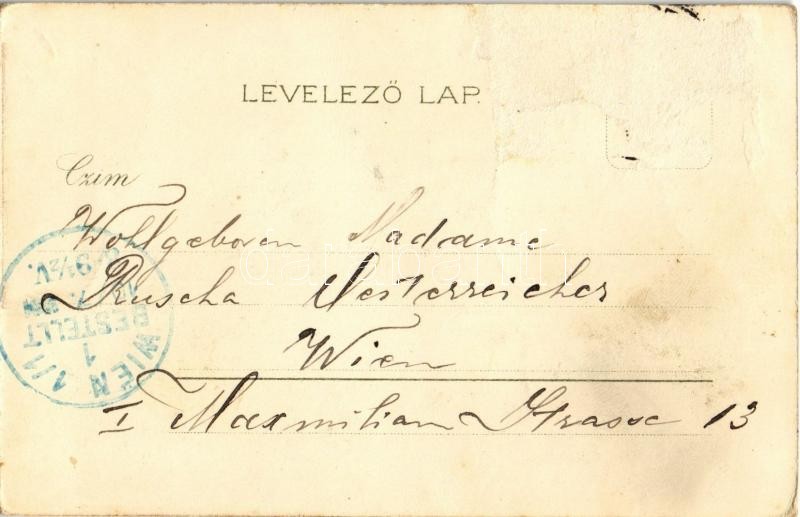 LEVELEZŐ LAP.
Czím
Wohlgeboren Madame
Ruscha Oesterreicher
Wien
I Maxmilian Strasse 13
WIEN 1/1
BESTELLT
1
9½V.